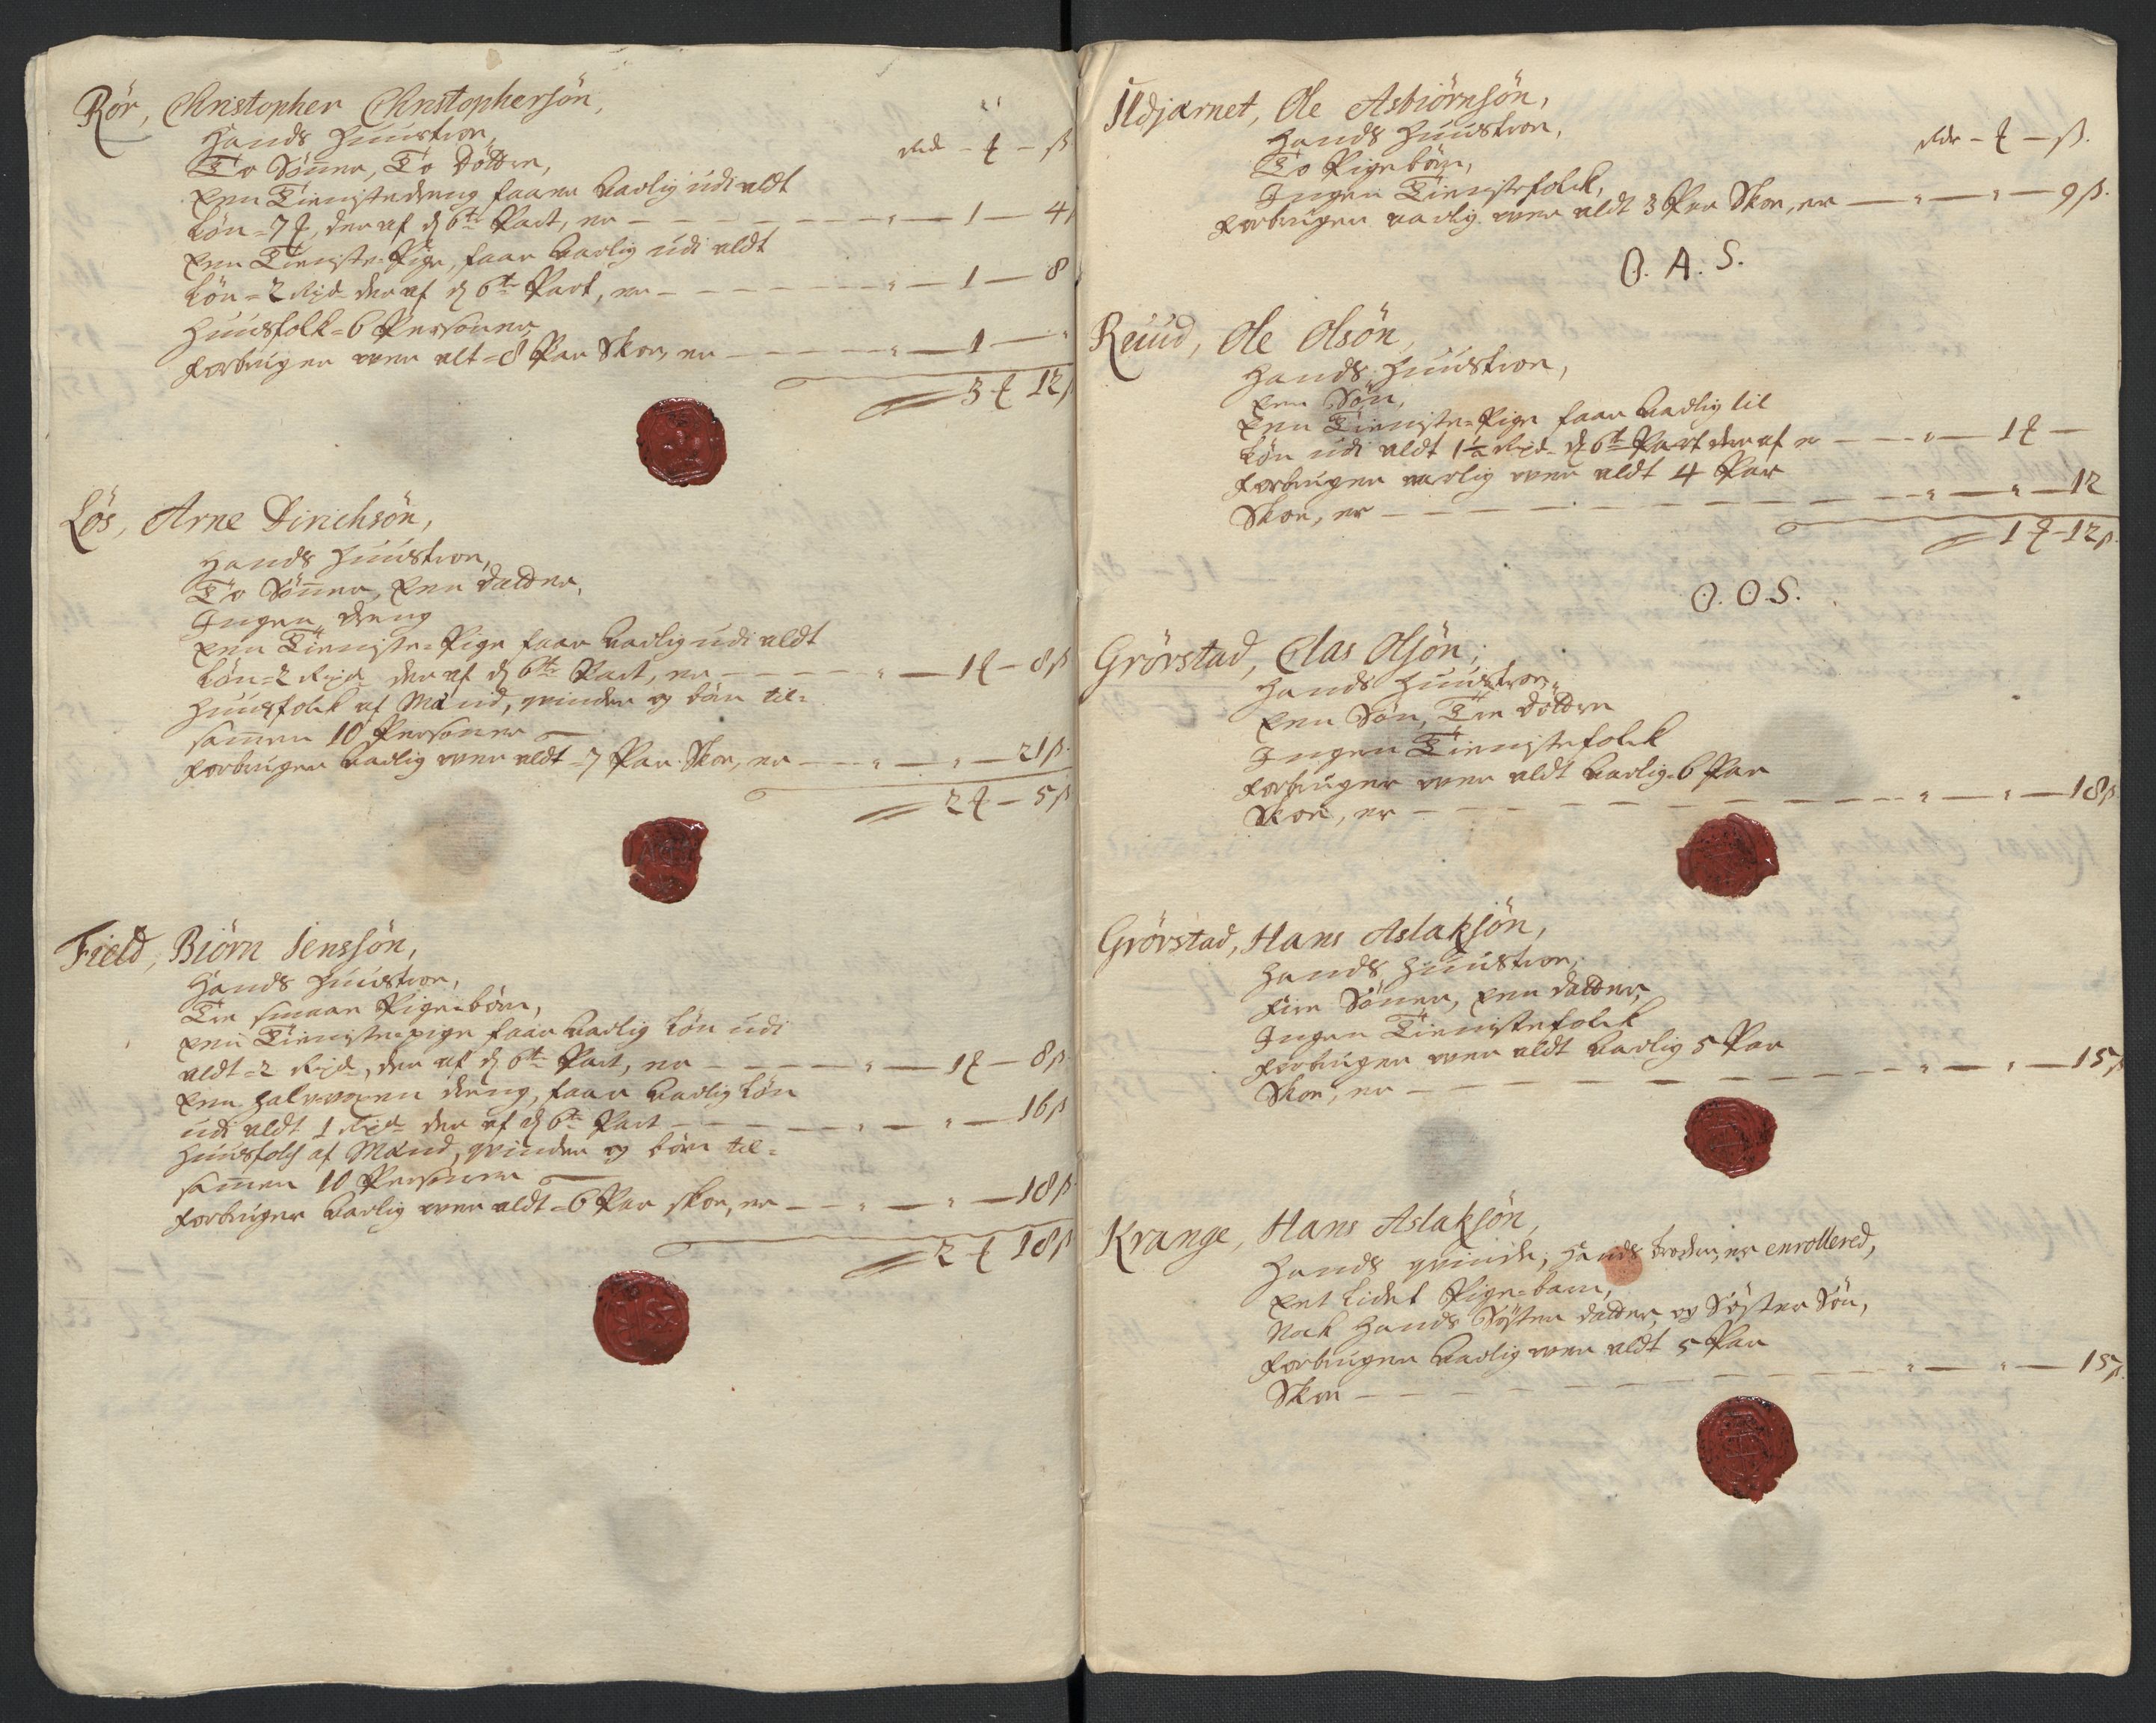 Rör, Christopher Christophersön,
Hands Huustroe,
Rdr – ₰ – ß
To Sönner, To Döttre,
Een Tienistedreng faaer Aarlig udi aldt
Lön = 7 ₰, der af d 6te Part, er – „ – 1 – 4 ß
Een Tieniste-Pige, faar Aarlig udi aldt
Lön = 2 Rixdr der af d 6te Part, er – „ – 1 – 8
Huusfolk = 6 Personer
Forbruger over alt = 8 Par Skoe, er – „ – 1 – „
3 ₰ 12 ß
Lös, Arne Dirichsön,
Hands Huustroe,
To Sönner, Een Datter,
Ingen dreng
Een Tieniste-Pige faar Aarlig udi aldt
Lön = 2 Rixdr der af d 6te Part, er – „ – 1 ₰ – 8 ß
Huusfolck af Mænd, qvinder og börn til=
sam̄en 10 Personer
Forbruger Aarlig over aldt = 7 Par Skoe, er – „ – „ – 21 ß
2 ₰ – 5 ß
Field, Biörn Jenssön,
Hands Huustroe,
Tre smaae Pigebörn,
Een Tienistepige faar Aarlig Lön udi
aldt = 2 Rixdr, der af d 6te Part, er – „ – 1 ₰ – 8 ß
Een halvvoxen dreng, faar Aarlig Lön
udi aldt 1 Rixdr der af d 6te Part – „ – „ – 16 ß
Huusfolch af Mænd, qvinder og börn til=
sam̄en 10 Personer
Forbruger Aarlig over aldt = 6 Par skoe, er – „ – „ – 18 ß
2 ₰ 18 ß
Ildjarnet, Ole Asbiörnsön,
Hands Huustroe,
Rdr – ₰ – ß.
To Pigebörn,
Ingen Tienistefolck,
Forbruger aarlig over aldt 3 Par Skoe, er – „ – „ – 9 ß.
O. A. S.
Ruud, Ole Olsön,
Hands Huustroe,
Een Sön,
Een Tieniste-Pige faar Aarlig til
Lön udi aldt 1½ Rixdr d 6te Part der af er – „ – 1 ₰ –
Forbruger aarlig over aldt 4 Par
Skoe, er – „ – „ – 12
1 ₰ – 12 ß.
O. O. S.
Grörstad, Clas Olsön,
Hands Huustroe,
Een Sön, Tre Döttre
Ingen Tienistefolck
Forbruger over aldt Aarlig 6 Par
Skoe, er – „ – „ – 18 ß
Grörstad, Hans Aslaksön,
Hands Huustroe,
Fire Sönner, Een Datter,
Ingen Tienistefolck
Forbruger over aldt Aarlig 5 Par
Skoe, er – „ – „ – 15 ß
Krange, Hans Aslaksön,
Hands qvinde, Hands broder, er enrollered,
Eet Lidet Pige-barn,
Nock Hands Söster datter, og Söster Sön,
Forbruger Aarlig over aldt 5 Par
Skoe – „ – „ – 15 ß.